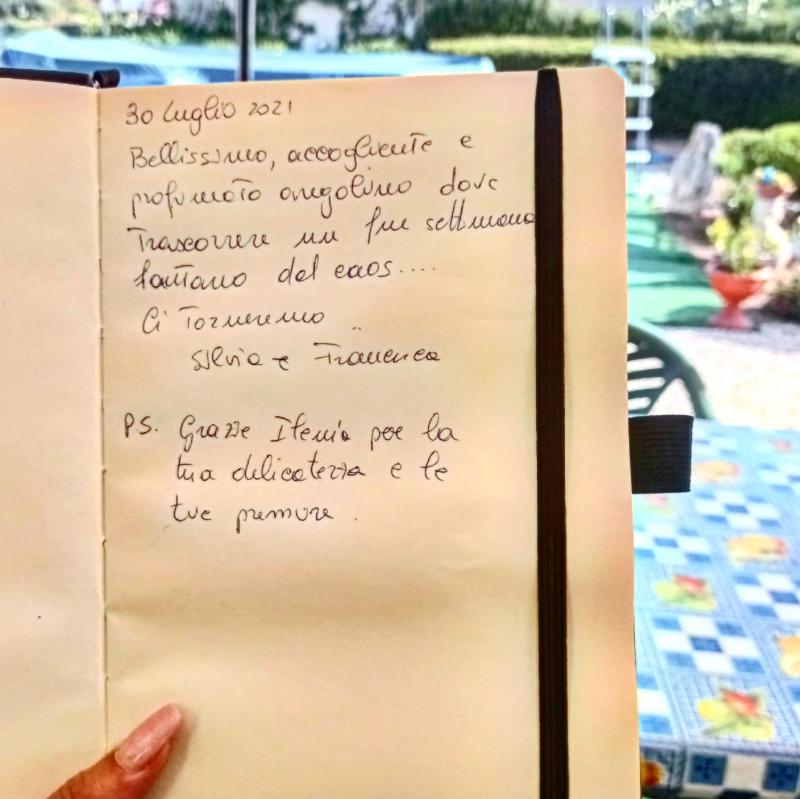 30 Luglio 2021
Bellissimo, accogliente e
profumato angolino dove
Trascorrere un fine settimana
lontano dal caos....
Ci Torneremo
Silvia e Francesca
PS. Grazie Ilenia per la
tua delicatezza e le
tue premure.